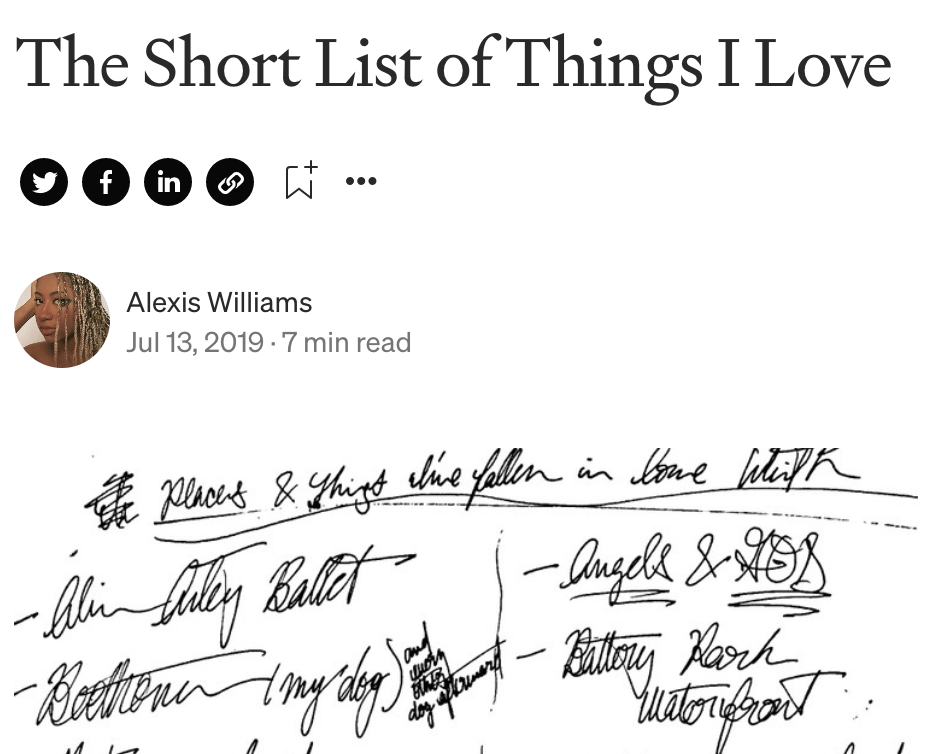 The Short List of Things I Love
Alexis Williams
Jul 13, 2019 · 7 min read
Places & Things I've fallen in love With
- Alvin Ailey Ballet
- Beethoven (my dog) and every other dog afterward
- Angels & GOD
- Battery Park
Waterfront